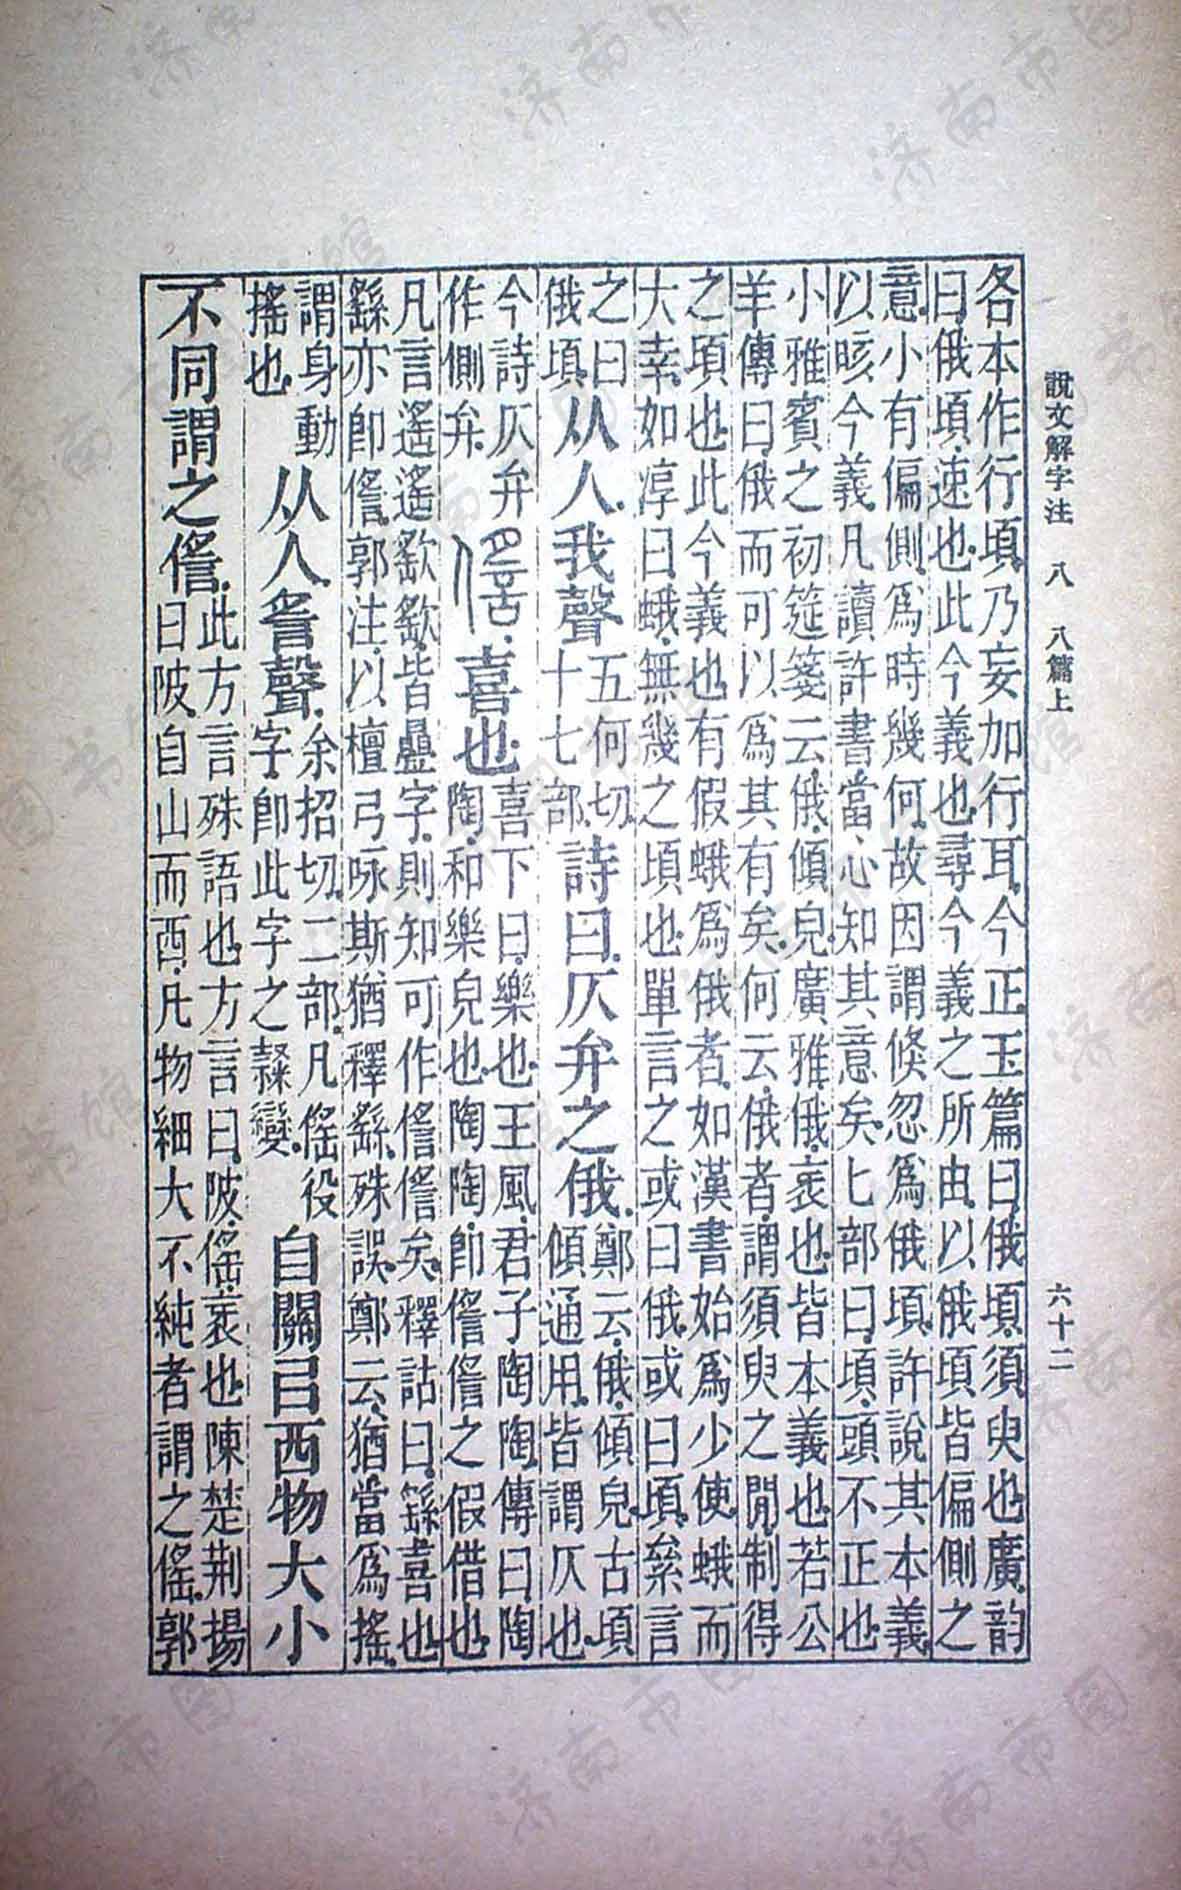 說文解字注 八 八篇上 六十二
各本作行頃乃妄加行耳今正玉篇曰俄頃須臾也廣韵
曰俄頃速也此今義也尋今義之所由以俄頃皆偏側之
意小有偏側爲時幾何故因謂倏忽爲俄頃許說其本義
以晐今義凡讀許書當心知其意矣匕部曰頃頭不正也
小雅賓之初筵箋云俄傾皃廣雅俄衺也皆本義也若公
羊傳曰俄而可以爲其有矣何云俄者謂須臾之閒制得
之頃也此今義也有假蛾爲俄者如漢書始爲少使蛾而
大幸如淳曰蛾無幾之頃也單言之或曰俄或曰頃絫言
之曰俄頃从人我聲五何切十七部詩曰仄弁之俄鄭云俄傾皃古頃傾通用皆謂仄也
今詩仄弁作側弁⿰亻䚻喜也喜下曰樂也王風君子陶陶傳曰陶陶和樂皃也陶陶卽⿰亻䚻⿰亻䚻之假借也
凡言遙遙皆疊字則知可作⿰亻䚻⿰亻䚻矣釋詁曰繇喜也
繇亦卽⿰亻䚻郭注以檀弓咏斯猶釋繇殊誤鄭云猶當爲搖
謂身動搖也从人䚻聲余招切二部凡傜役字卽此字之隸變自關㠯西物大小
不同謂之⿰亻䚻此方言殊語也方言曰陂傜衺也陳楚荆揚曰陂自山而西凡物細大不純者謂之傜郭